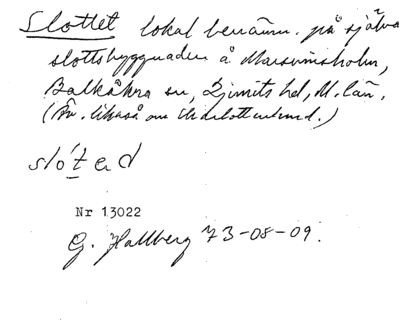 Slottet lokal benämn. på själva
slottsbyggnaden å Marsvinsholm,
Balkåkra sn, Ljunits hd, M. län.
(Äv. likaså om Charlottenlund.)
slóted
Nr 13022
G. Hallberg 73-08-09.